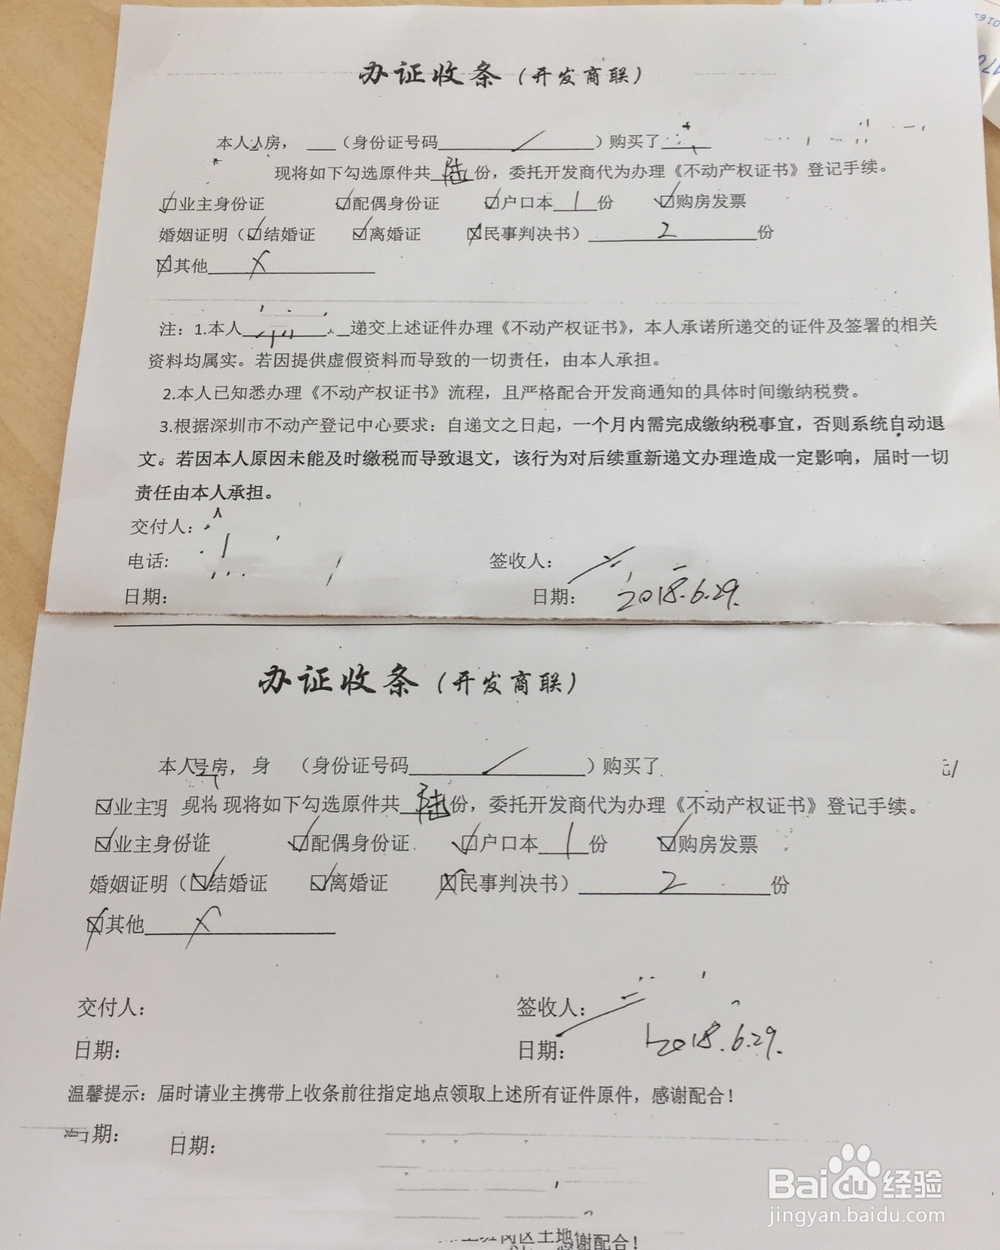 办证收条（开发商联）
本人 房， （身份证号码 ）购买了
现将如下勾选原件共陆份，委托开发商代为办理《不动产权证书》登记手续。
☑业主身份证 ☑配偶身份证 ☑户口本1份 ☑购房发票
婚姻证明（☑结婚证 ☑离婚证 ☒民事判决书）2份
☒其他 ×
注：1.本人 递交上述证件办理《不动产权证书》，本人承诺所递交的证件及签署的相关
资料均属实。若因提供虚假资料而导致的一切责任，由本人承担。
2.本人已知悉办理《不动产权证书》流程，且严格配合开发商通知的具体时间缴纳税费。
3.根据深圳市不动产登记中心要求：自递文之日起，一个月内需完成缴纳税事宜，否则系统自动退
文。若因本人原因未能及时缴税而导致退文，该行为对后续重新递文办理造成一定影响，届时一切
责任由本人承担。
交付人：
电话： 签收人：
日期： 日期：2018.6.29.
办证收条（开发商联）
本人 号房，身 （身份证号码 ）购买了
☑业主明 现将 现将如下勾选原件共陆份，委托开发商代为办理《不动产权证书》登记手续。
☑业主身份证 ☑配偶身份证 ☑户口本1份 ☑购房发票
婚姻证明（☑结婚证 ☑离婚证 ☒民事判决书）2份
☒其他 ×
交付人： 签收人：
日期： 日期：2018.6.29.
温馨提示：届时请业主携带上收条前往指定地点领取上述所有证件原件，感谢配合！
期： 日期：
感谢配合！
Baidu经验
jingyan.baidu.com